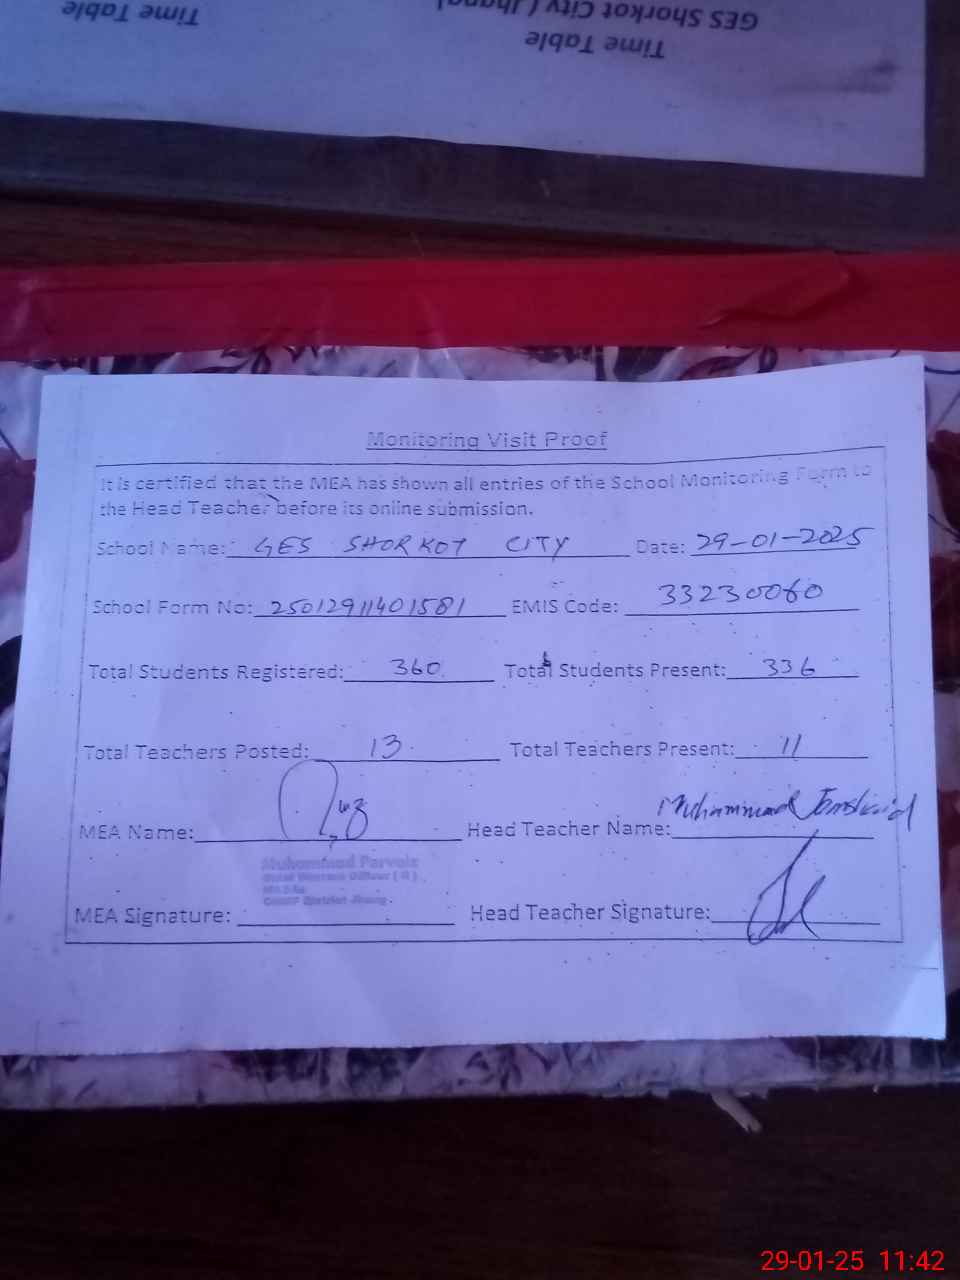 Time Table
GES Shorkot City (Jhang
Time Table
Monitoring Visit Proof
It is certified that the MEA has shown all entries of the School Monitoring Form to
the Head Teacher before its online submission.
School Name: GES SHORKOT CITY Date: 29-01-2025
School Form No: 25012911401581 EMIS Code: 33230060
Total Students Registered: 360 Total Students Present: 336
Total Teachers Posted: 13 Total Teachers Present: 11
MEA Name: Head Teacher Name: Muhammad Jamshaid
Muhammad Parvaiz
MEA Signature: Head Teacher Signature:
29-01-25 11:42